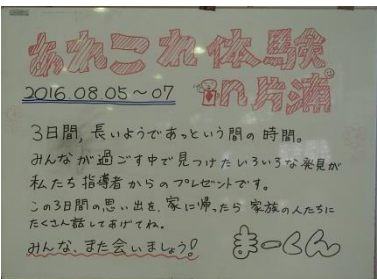 あれこれ体験
in片浦
2016.08.05～07
3日間，長いようであっという間の時間。
みんなが過ごす中で見つけたいろいろな発見が
私たち指導者からのプレゼントです。
この3日間の思い出を、家に帰ったら家族の人たちに
たくさん話してあげてね。
みんな、また会いましょう!
まーくん